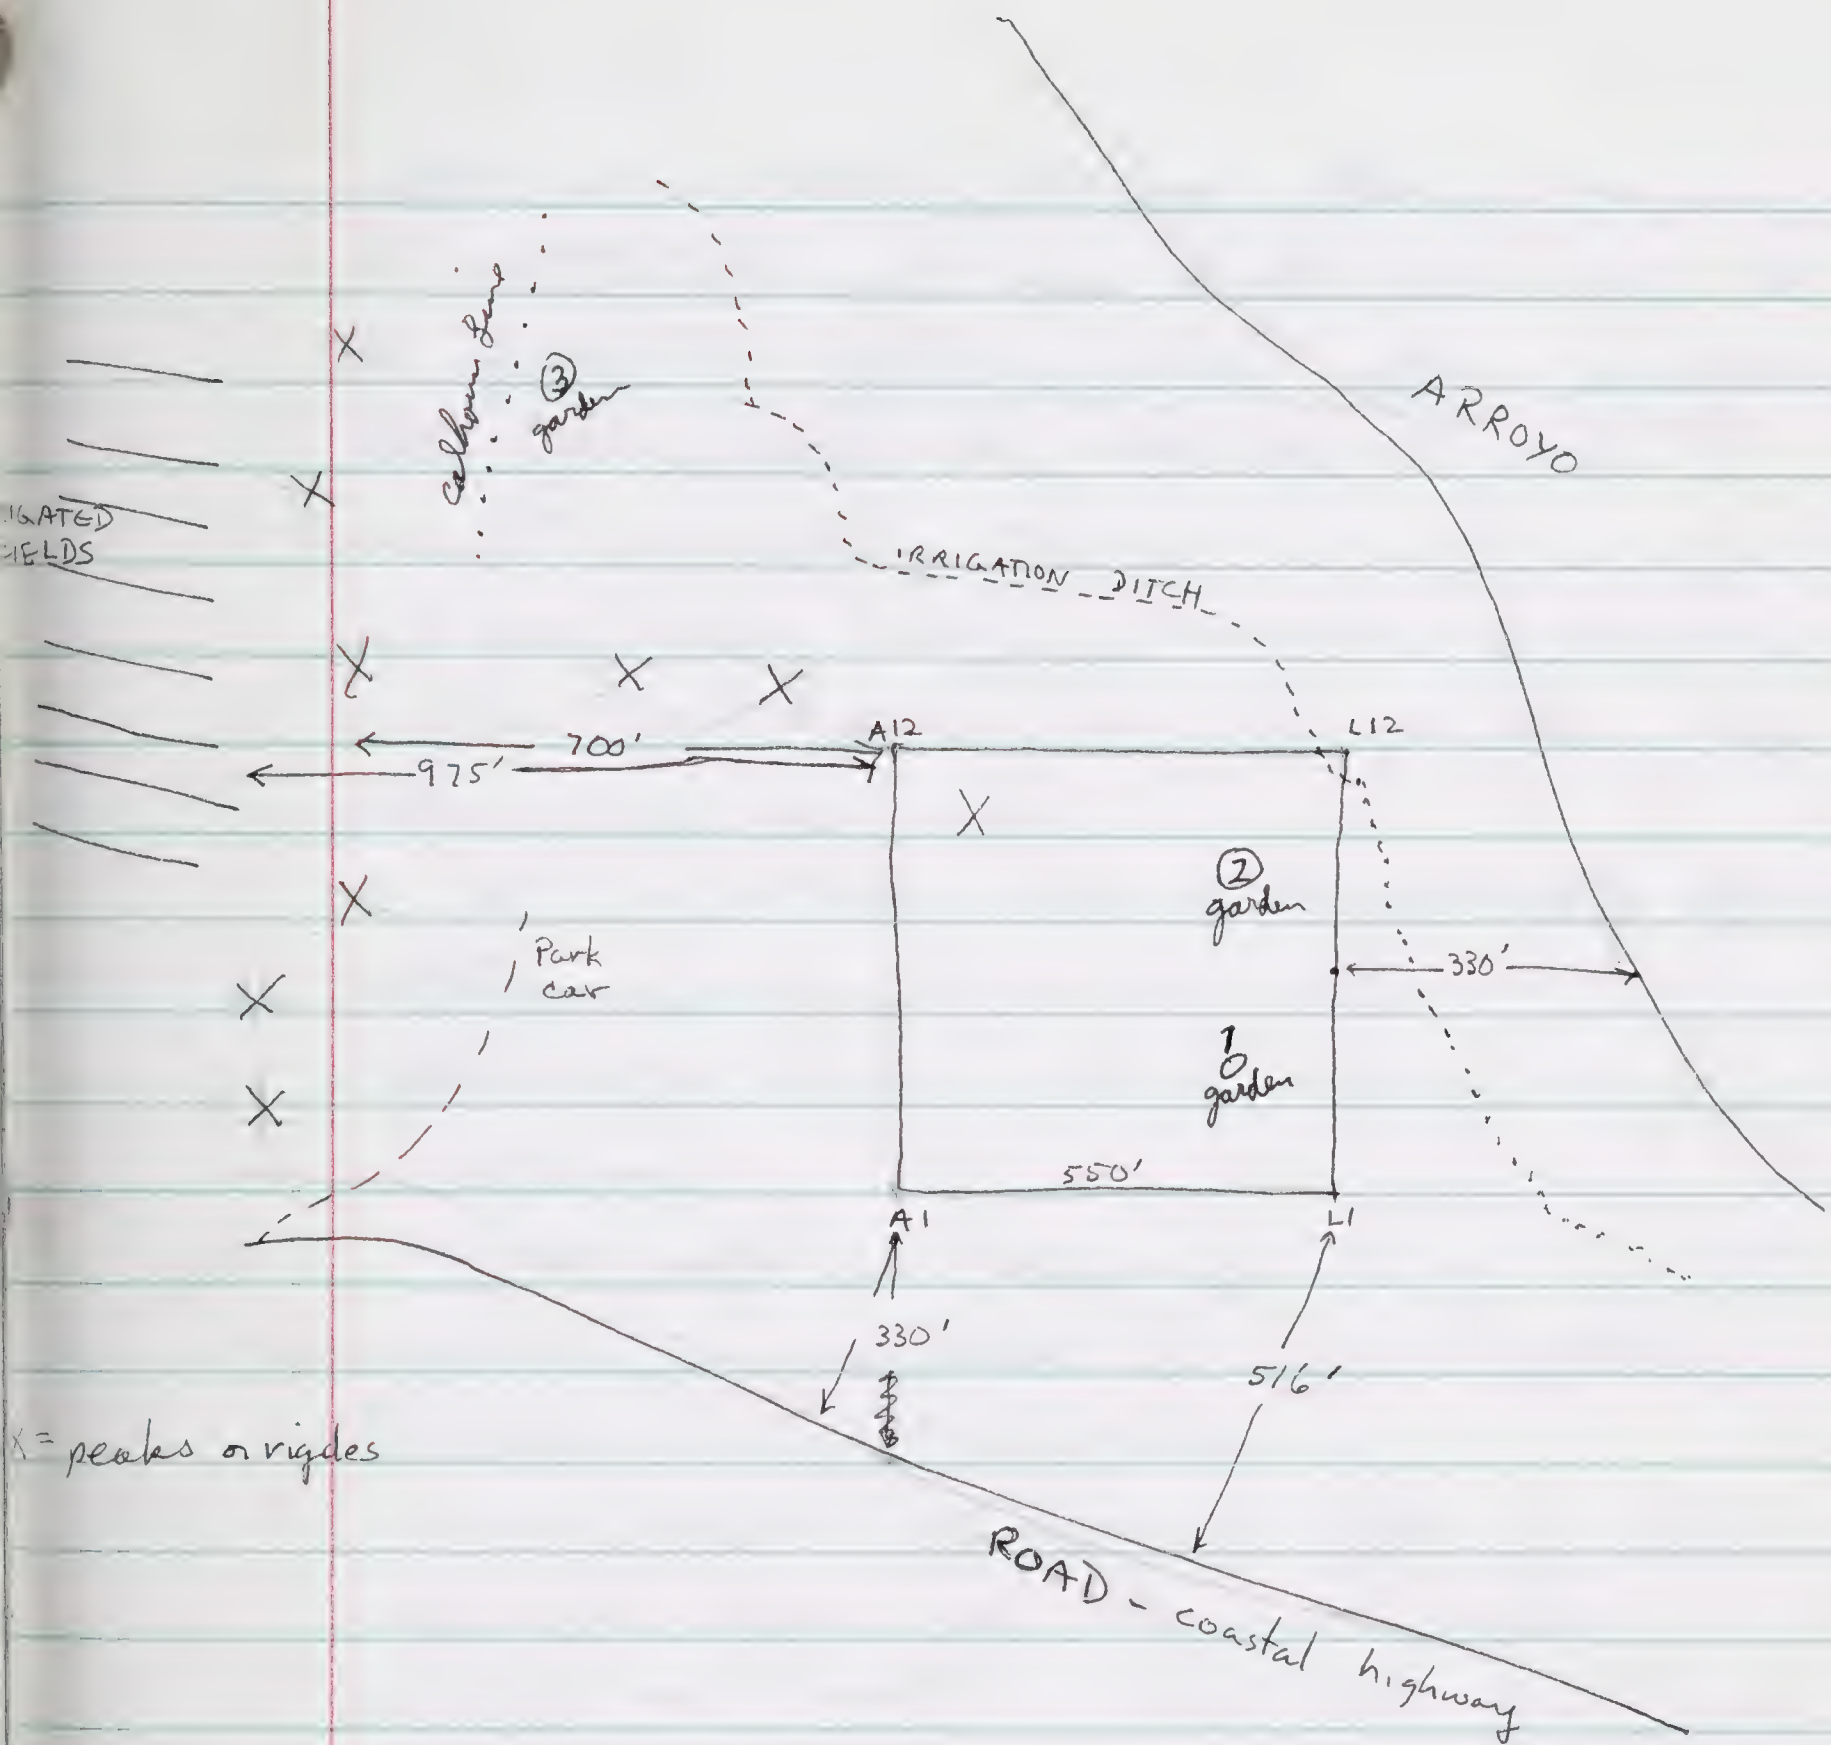 ARROYO
3
garden
IGATED
IELDS
IRRIGATION DITCH
A12
L12
700'
975'
2
garden
Park
car
330'
1
garden
550'
A1
L1
330'
516'
X = peaks or rigdes
ROAD - coastal highway